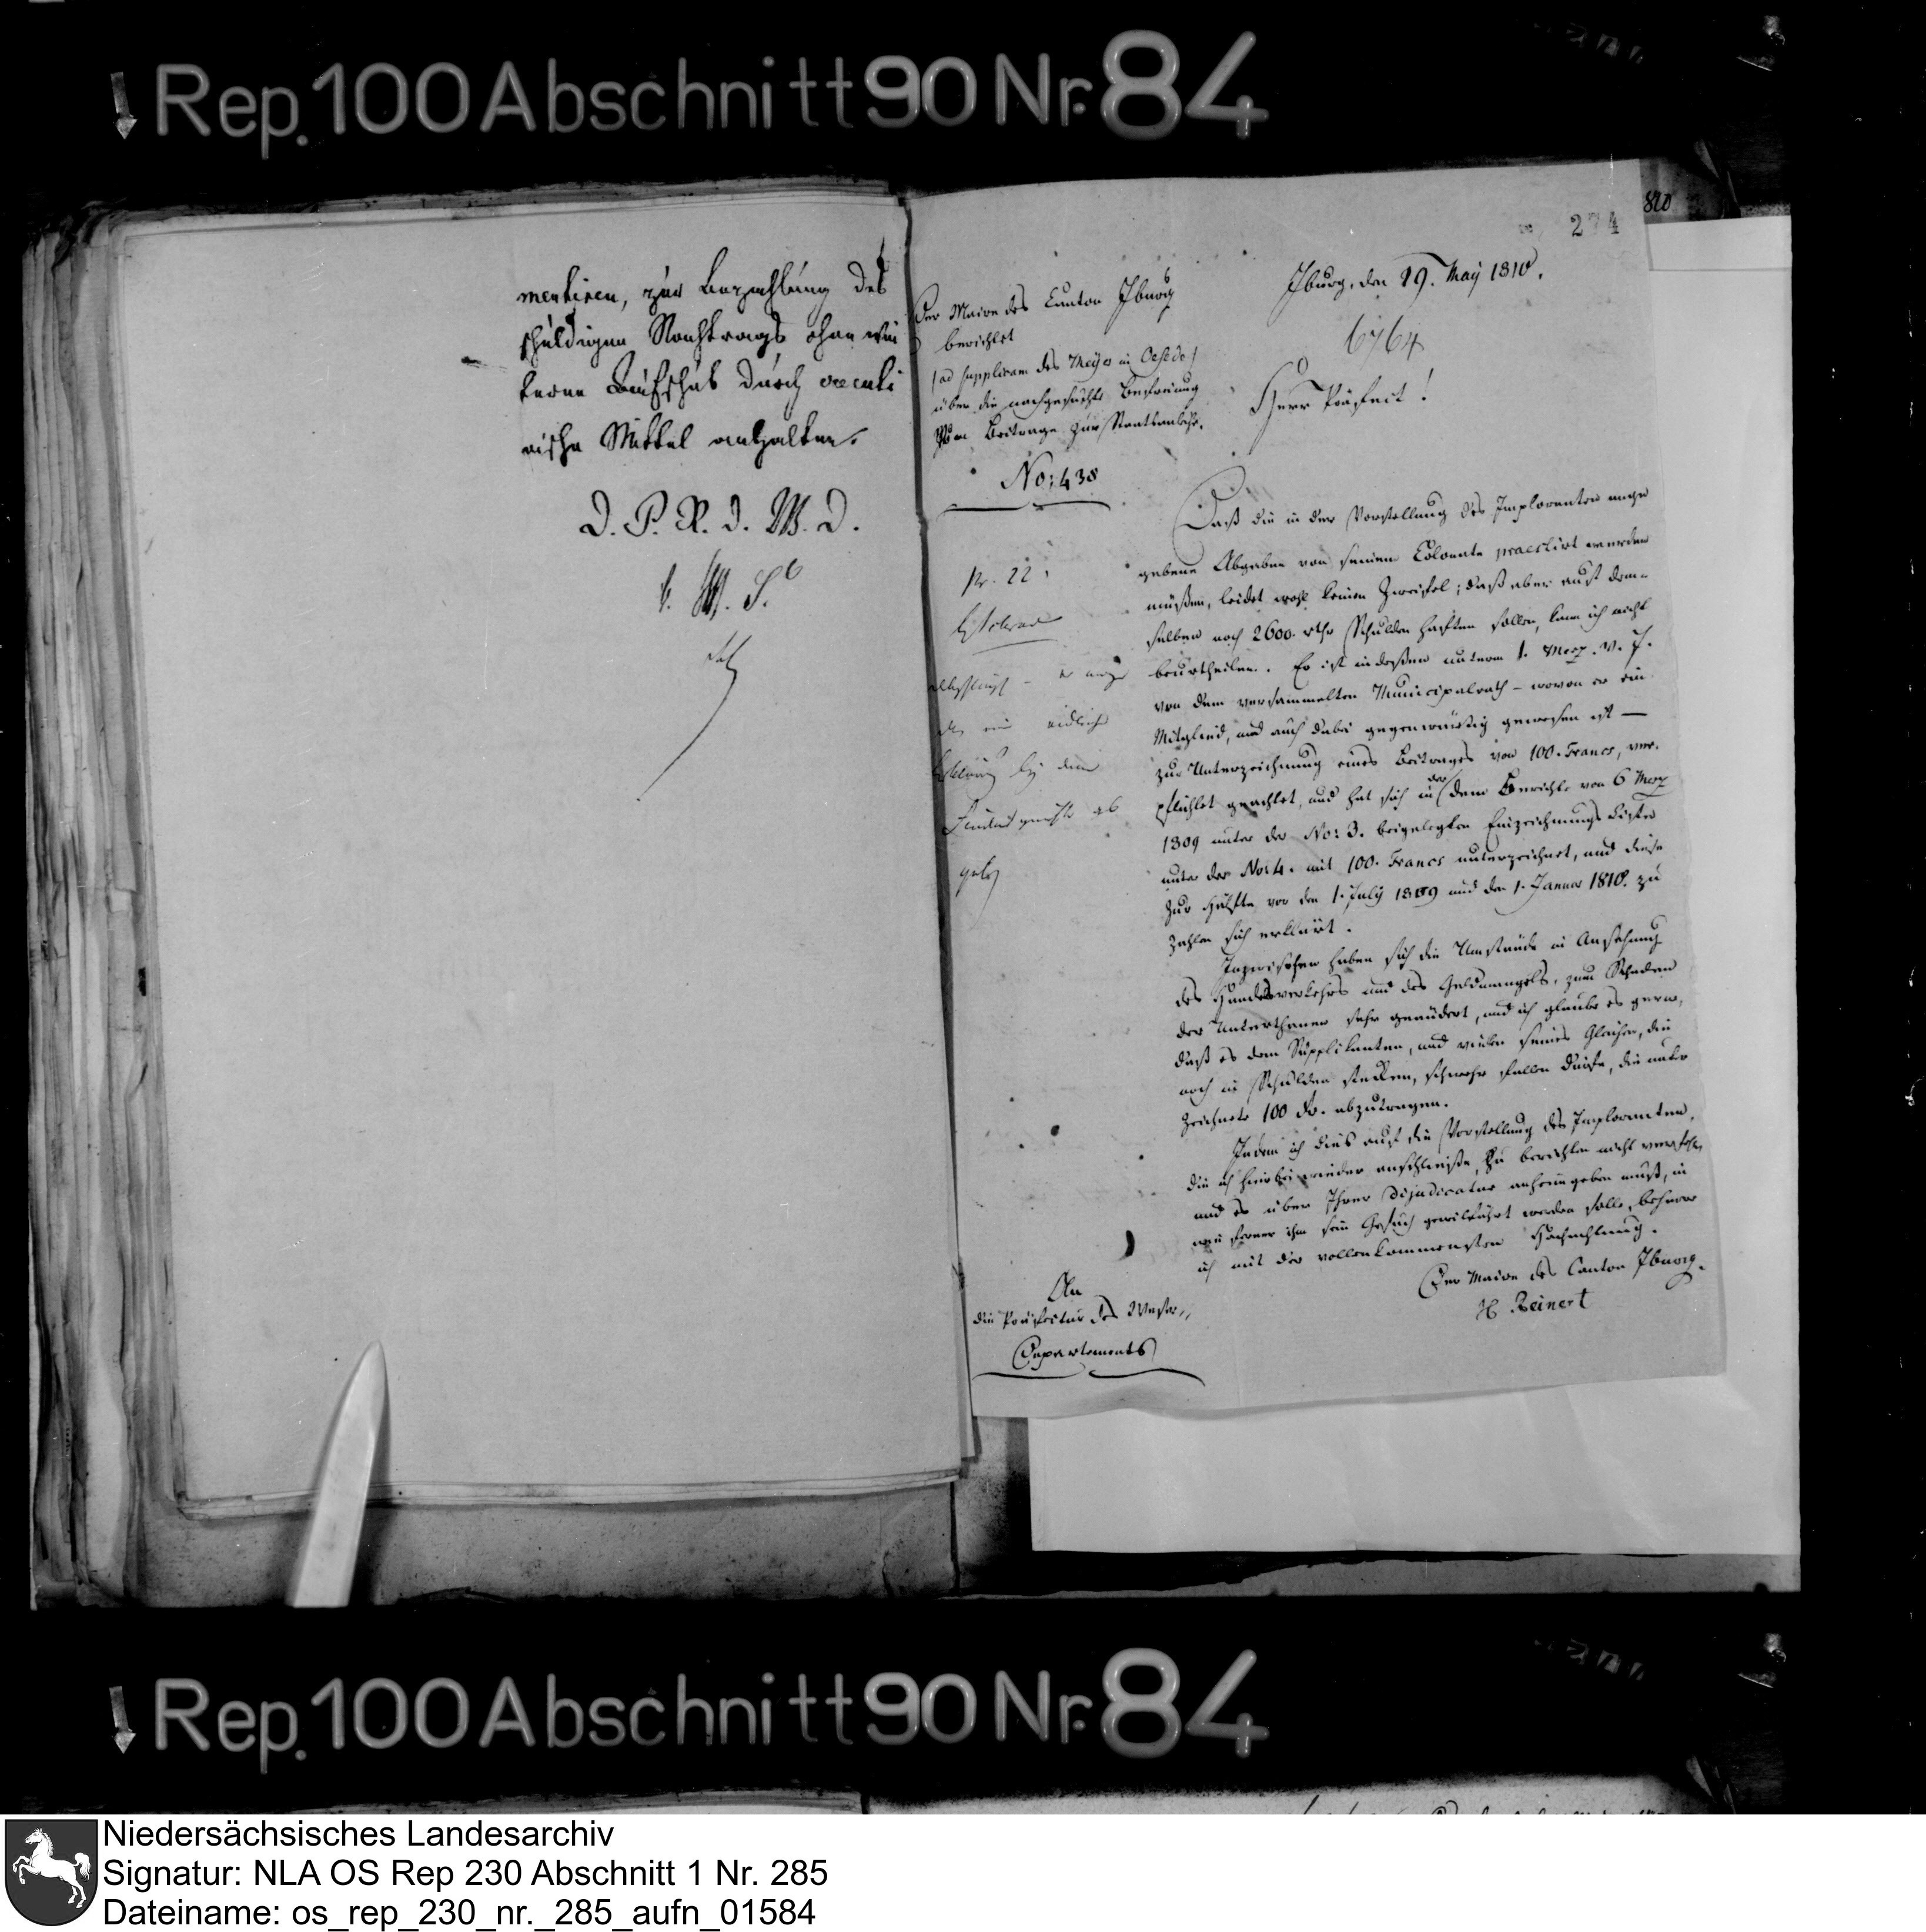 Rep. 100 Abschnitt 90 Nr. 84
mentiren, zur Bezahlung des
schuldigen Nachtrags ohne wei
teren Aufschub durch executi
vische Mittel anhalten.
D. P. R. d. W. D.
820
274
Der Maire des Canton Iburg
berichtet
/ad supplicam des Meÿer in Oesede/
über die nachgesuchte Befreiung
vom Beitrage zur Staatsanleihe.
No: 438
pr. 22.
eidliche
bey dem
Friedensgerichte ab
geben
Iburg, den 19. Maÿ 1810.
6764
Herr Präfect!
Daß die in der Vorstellung des Imploranten ange
gebene Abgaben von seinem Colonate praestirt werden
müßen, leidet wohl keinen Zweifel; daß aber auf dem-
selben noch 2600. rthr Schulden haften sollen, kann ich nicht
beurtheilen. Er ist indeßen unterm 1. Merz. v. J.
von dem versammelten Municipalrath – wovon er ein
Mitglied, und auch dabei gegenwärtig gewesen ist —
zur Unterzeichnung eines Beitrages von 100. Francs, ver-
pflichtet geachtet, und hat sich in der dem Berichte von 6 Merz
1809 unter der No: 3. beigelegten Einzeichnungs Liste
unter der No: 4. mit 100. Francs unterzeichnet, und diese
zur Hälfte vor den 1. Julÿ 1809 und den 1. Januar 1810. zu
zahlen sich erklärt.
Inzwischen haben sich die Umstände in Ansehung
des Handelsverkehrs und des Geldmangels, zum Schaden
der Unterthanen sehr geändert, und ich glaube es gern,
daß es dem Supplikanten, und vielen seines Gleichen, die
noch in Schulden stecken, schwehr fallen dürfte, die unter
zeichnete 100 Fr. abzutragen.
Indem ich dies auf die Vorstellung des Imploranten,
die ich hierbei wieder anschließe, zu berichten nicht verfehle,
und es über Ihrer Dijudicatur anheimgeben muß, in
wie ferner ihm sein Gesuch gewillfahrt werden solle, beharre
ich mit der vollenkommensten Hochachtung.
Der Maire des Canton Iburg.
H. Reinert
An
die Präfectur des Weser-
Departements
Rep. 100 Abschnitt 90 Nr. 84
Niedersächsisches Landesarchiv
Signatur: NLA OS Rep 230 Abschnitt 1 Nr. 285
Dateiname: os_rep_230_nr._285_aufn_01584